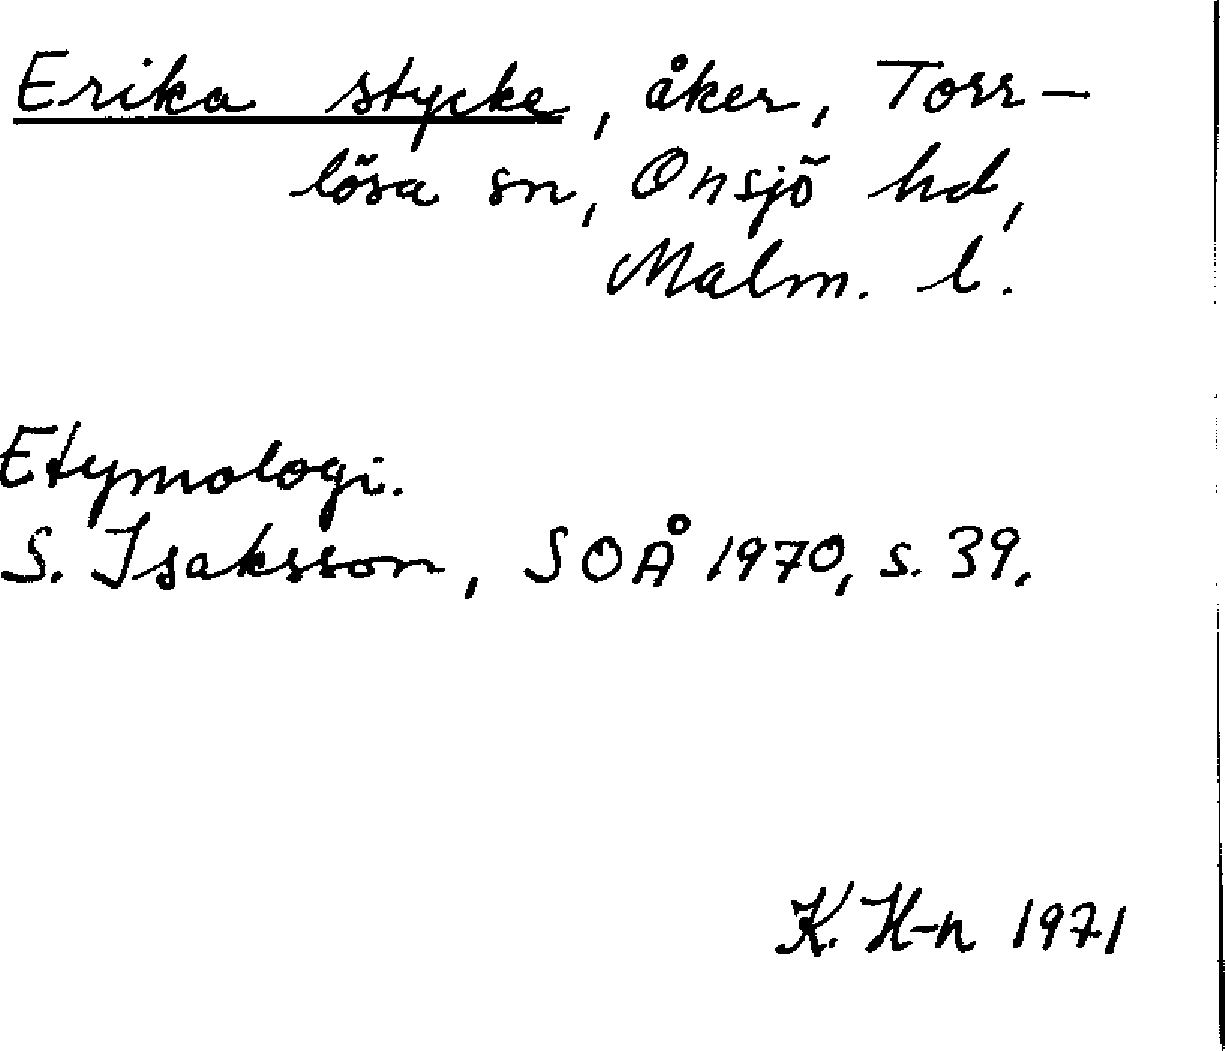 Erika stycke, åker, Torr-
lösa sn, Onsjö hd,
Malm. l.
Etymologi.
S. Isaksson, SOÅ 1970, s. 39.
K. H-n 1971